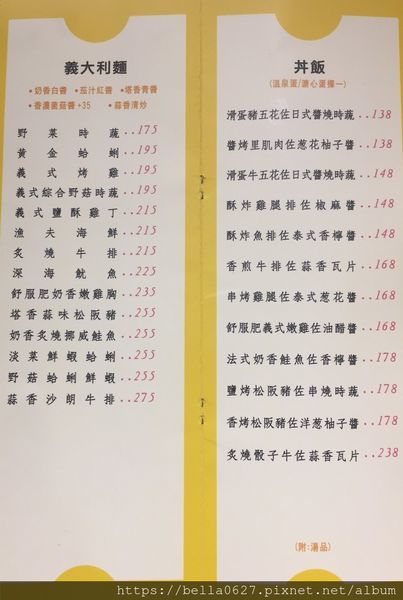 義大利麵
•奶香白醬 •茄汁紅醬 •塔香青醬
•香濃菌菇醬+35 •蒜香清炒
野菜時蔬..175
黃金蛤蜊..195
義式烤雞..195
義式綜合野菇時蔬..195
義式鹽酥雞丁..215
漁夫海鮮..215
炙燒牛排..215
深海魷魚..225
舒服肥奶香嫩雞胸..235
塔香蒜味松阪豬..255
奶香炙燒挪威鮭魚..255
淡菜鮮蝦蛤蜊..255
野菇蛤蜊鮮蝦..255
蒜香沙朗牛排..275
丼飯
(溫泉蛋/溏心蛋擇一)
滑蛋豬五花佐日式醬燒時蔬..138
醬烤里肌肉佐葱花柚子醬..138
滑蛋牛五花佐日式醬燒時蔬..148
酥炸雞腿排佐椒麻醬..148
酥炸魚排佐泰式香檸醬..148
香煎牛排佐蒜香瓦片..168
串烤雞腿佐泰式葱花醬..168
舒服肥義式嫩雞佐油醋醬..168
法式奶香鮭魚佐香檸醬..178
鹽烤松阪豬佐串燒時蔬..178
香烤松阪豬佐洋葱柚子醬..178
炙燒骰子牛佐蒜香瓦片..238
(附:湯品)
https://bella0627.pixnet.net/album